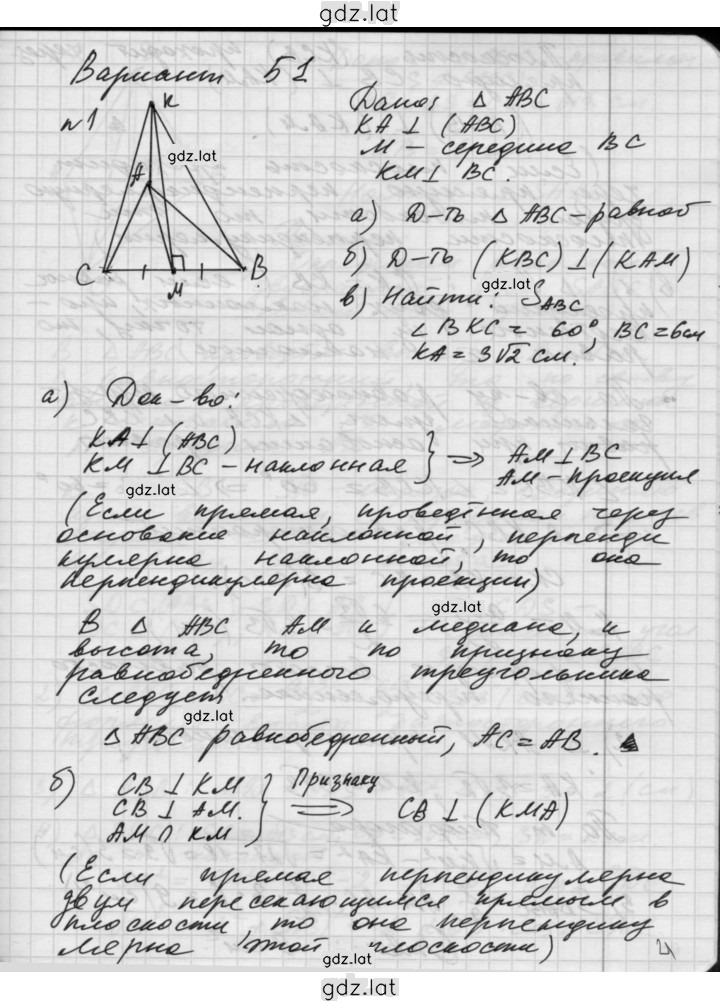 gdz.lat
Вариант Б1
n1
K
A
C
M
B
gdz.lat
Дано: △ ABC
KA ⊥ (ABC)
M – середина BC
KM ⊥ BC.
а) Д-ть △ ABC – равноб
б) Д-ть (KBC) ⊥ (KAM)
gdz.lat
в) Найти: S_ABC
∠ BKC = 60°, BC = 6см
KA = 3√2 см.
а) Док-во:
KA ⊥ (ABC)
KM ⊥ BC – наклонная } ⇒ AM ⊥ BC
AM – проекция
gdz.lat
(Если прямая, проведённая через
основание наклонной, перпенди
кулярна наклонной, то она
перпендикулярна проекции)
gdz.lat
В △ ABC AM и медиана, и
высота, то по признаку
равнобедренного треугольника
следует
gdz.lat
△ ABC равнобедренный, AC = AB.
б) CB ⊥ KM
CB ⊥ AM.
AM ∩ KM } Признаку ⇒ CB ⊥ (KMA)
(Если прямая перпендикулярна
двум пересекающимся прямым в
плоскости, то она перпендику
лярна этой плоскости)
gdz.lat
21
gdz.lat